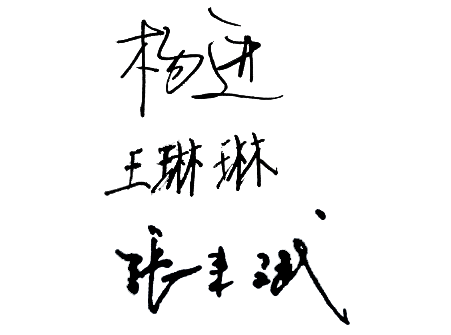 杨进
王琳琳
张来斌